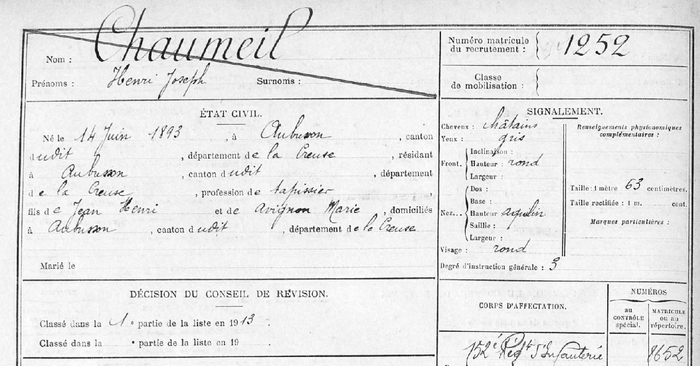 Nom : Chaumeil
Prénoms : Henri Joseph Surnoms :
Numéro matricule
du recrutement : 1252
Classe
de mobilisation :
ÉTAT CIVIL.
Né le 14 Juin 1893, à Aubusson, canton
dudit, département de la Creuse, résidant
à Aubusson, canton dudit, département
de la Creuse, profession de tapissier,
fils de Jean Henri et de Avignon Marie, domiciliés
à Aubusson, canton dudit, département de la Creuse
Marié le
DÉCISION DU CONSEIL DE RÉVISION.
Classé dans la 1e partie de la liste en 1913
Classé dans la partie de la liste en 19
SIGNALEMENT.
Cheveux : châtains
Yeux : gris
Front. Inclinaison :
Hauteur : rond
Largeur :
Nez... Dos :
Base :
Hauteur aquilin
Saillie :
Largeur :
Visage : rond
Renseignements physionomiques
complémentaires :
Taille : 1 mètre 63 centimètres.
Taille rectifiée : 1 m. cent.
Marques particulières :
Degré d'instruction générale : 3
CORPS D'AFFECTATION.
NUMÉROS
AU
CONTRÔLE
spécial.
MATRICULE
OU AU
répertoire.
152e Régt d'Infanterie
8652